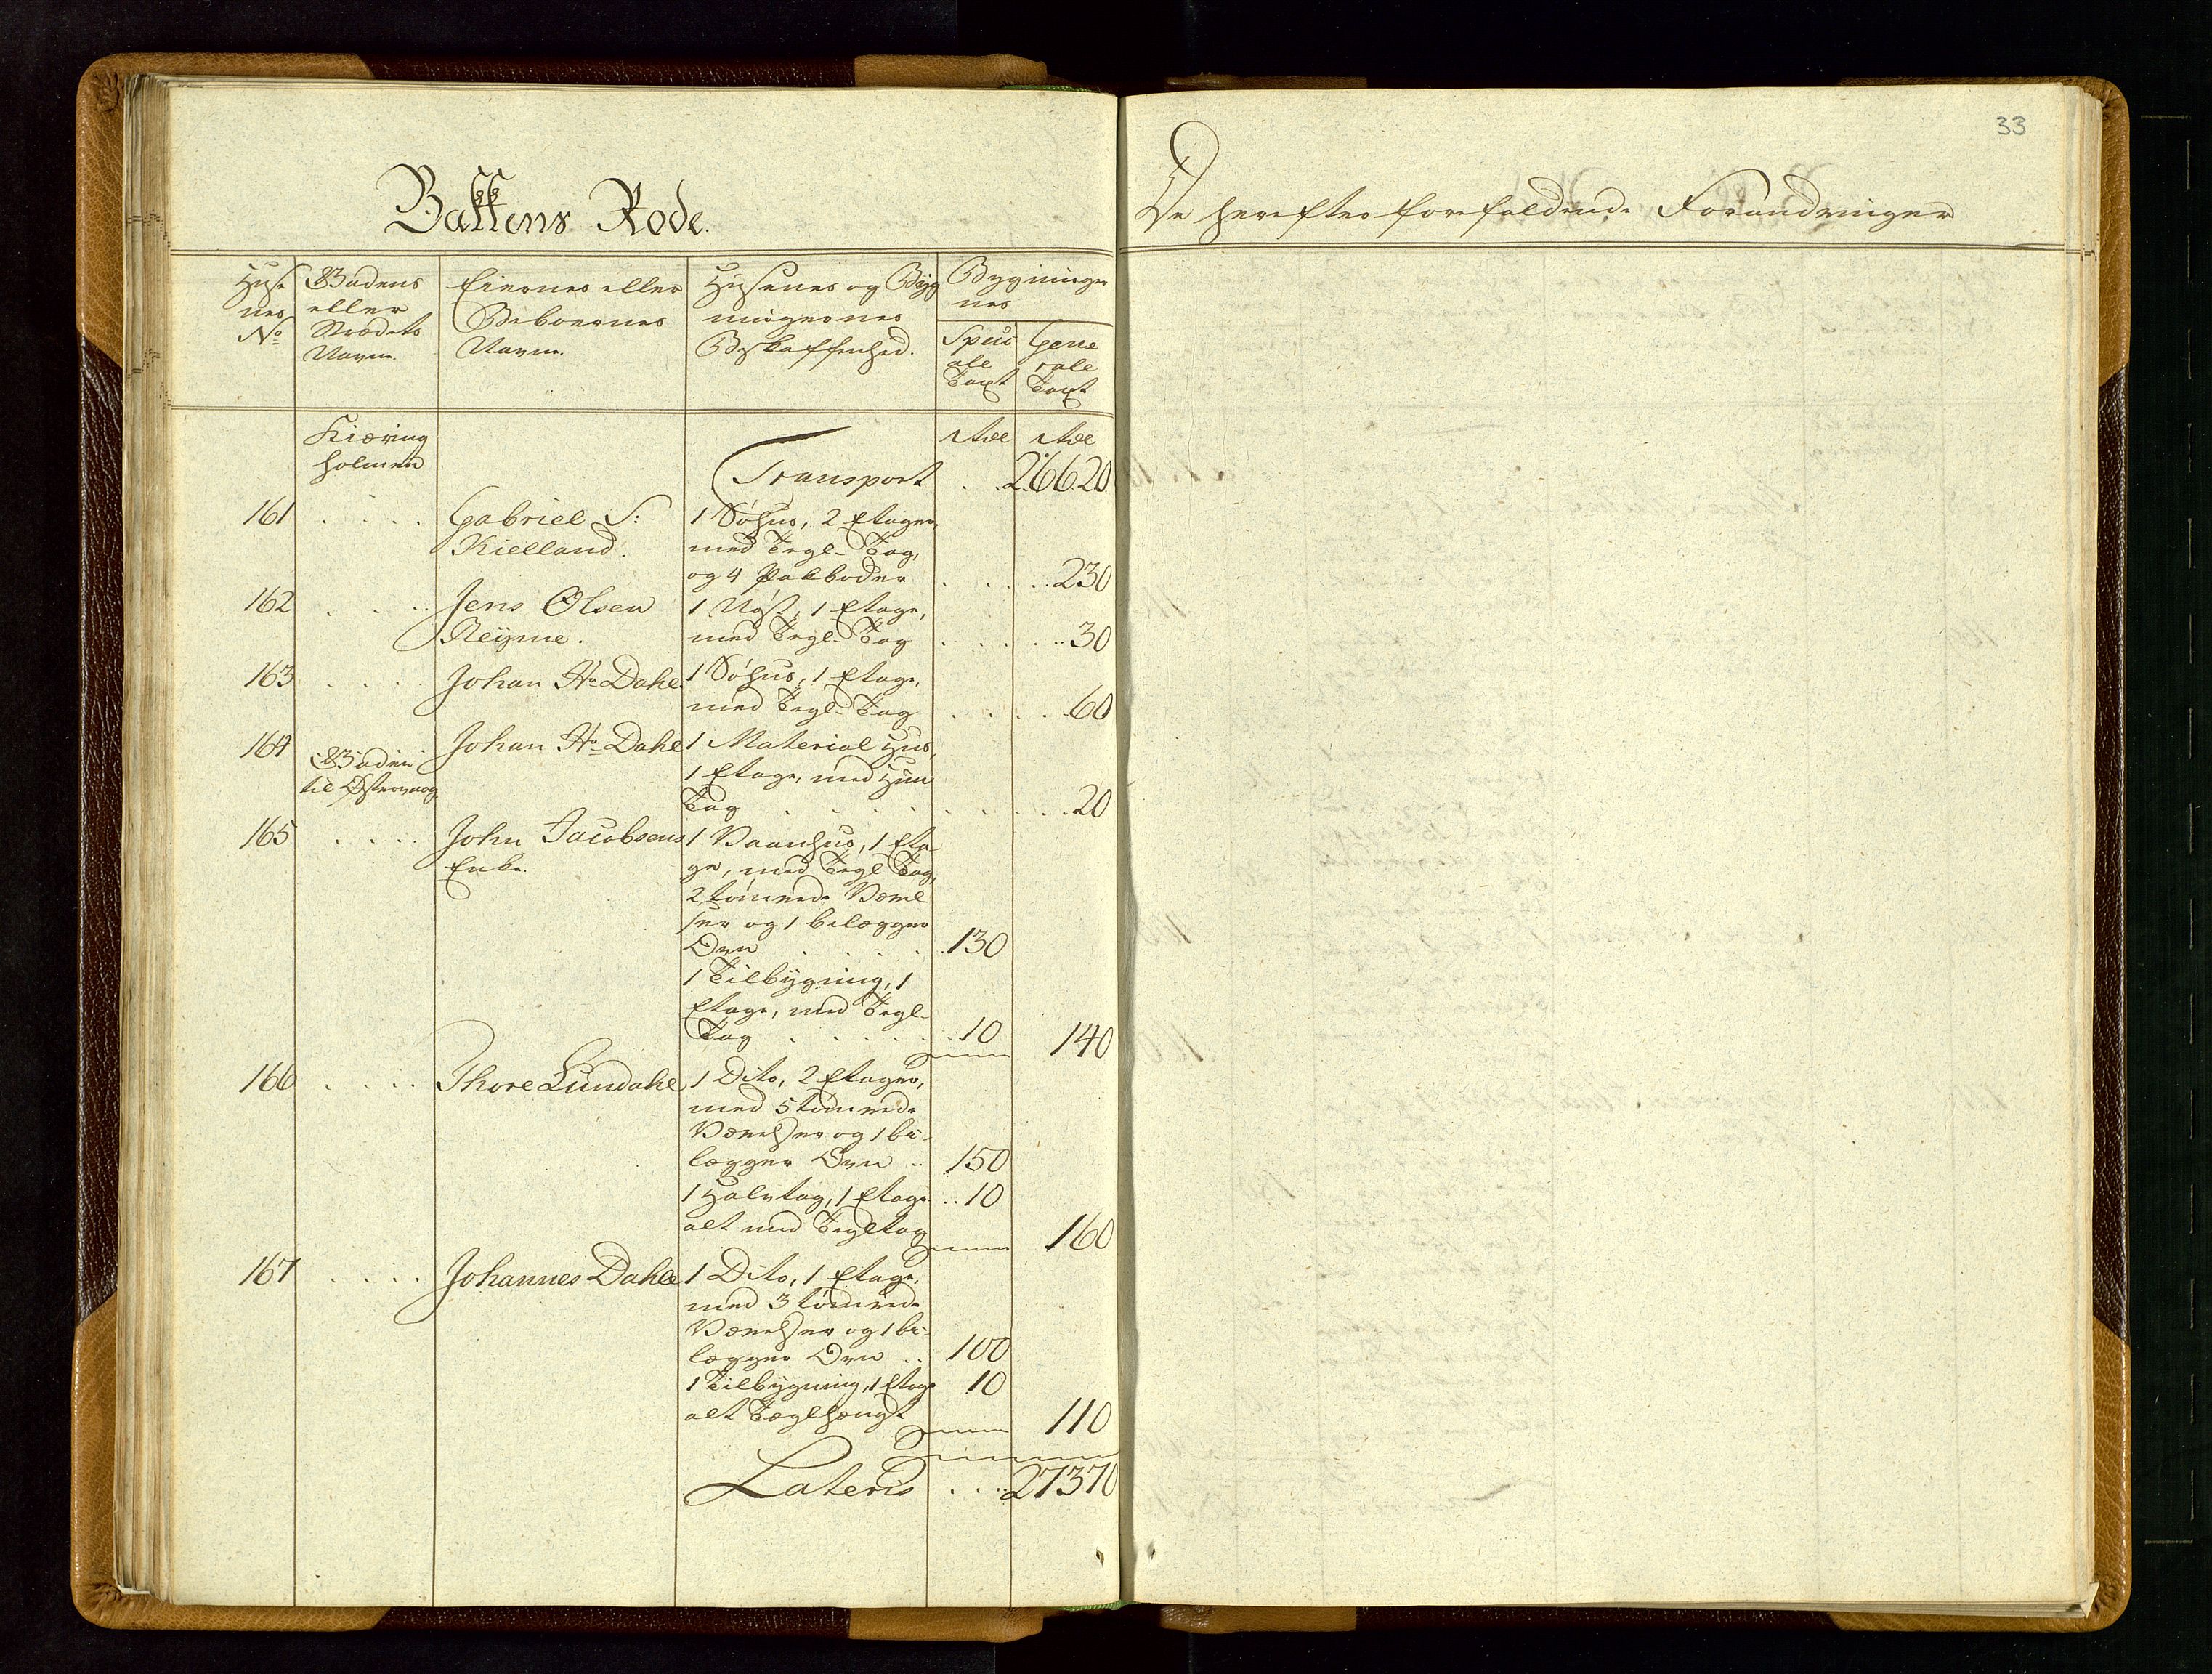 Bakkens Rode.
Huse
nes
No
Gadens
eller
Strædets
Navne.
Eiernes eller
Beboernes
Navne.
Husenes og Byg
ningernes
Beskaffenhed.
Bygninger
nes
Speci
ale
Taxt
Gene
rale
Taxt
Kiæring
holmen
Transport . . 26620.
161 . . . . Gabriel S:
Kielland.
1 Søhus, 2 Etager,
med Tegl-Tag,
og 4 Pakboder . . . . 230
162 . . . . Jens Olsen
Reyme.
1 Nøst, 1 Etage,
med Tegl-Tag . . . . 30
163 . . . . Johan Hr. Dahl
1 Søhus, 1 Etage,
med Tegl-Tag . . . . 60
164 Gaden
til Østervaag
Johan Hr. Dahl
1 Material Huus,
1 Etage, med Huun
Tag . . . . 20
165 . . . . John Jacobsens
Enke.
1 Vaanhus, 1 Eta-
ge, med Tegl Tag,
2 tømrede Værel
ser og 1 bilægger
Ovn . . . . 130
1 Tilbygning, 1
Etage, med Tegl-
Tag . . . . 10 140
166 . . . . Thore Lundahl
1 Dito, 2 Etager,
med 5 tømrede
Værelser og 1 bi-
lægger Ovn .. 150
1 Halvtag, 1 Etage .. 10
alt med Tegltag 160
167 . . . . Johannes Dahle
1 Dito, 1 Etage,
med 3 tømrede
Værelser og 1 bi-
lægger Ovn .. 100
1 Tilbygning, 1 Etage 10
alt Teglhængt 110
Lateris . . . 27370
33
De herefter forefaldende Forandringer